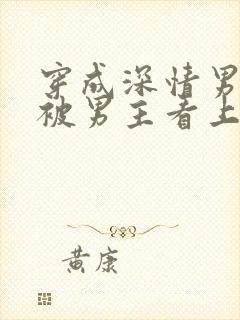 穿成深情男
被男主看上
黄康